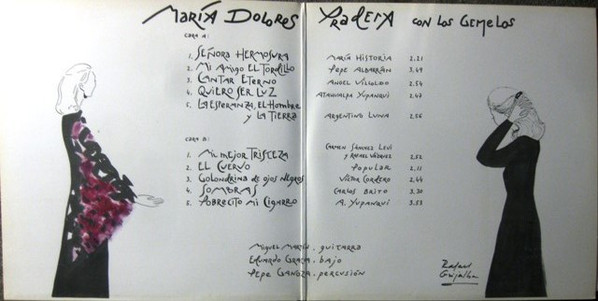 María Dolores Pradera con los Gemelos
CARA A:
1. Señora Hermosura María Historia 2.21
2. Mi Amigo El Tordillo Pepe Albarrán 2.49
3. Cantar Eterno Angel Villoldo 2.54
4. Quiero Ser Luz Atahualpa Yupanqui 2.47
5. La Esperanza, El Hombre
y La Tierra Argentino Luna 2.56
CARA B:
Carmen Sánchez Levi
1. Mi Mejor Tristeza y Rafael Vázquez 2.52
2. El Cuervo Popular 2.11
3. Golondrina de Ojos Negros Víctor Cordero 2.44
4. Sombras Carlos Brito 3.30
5. Pobrecito Mi Cigarro A. Yupanqui 3.53
Miguel Martín. guitarra
Eduardo Gracia. bajo
Pepe percusión
Rafael
Grijalba